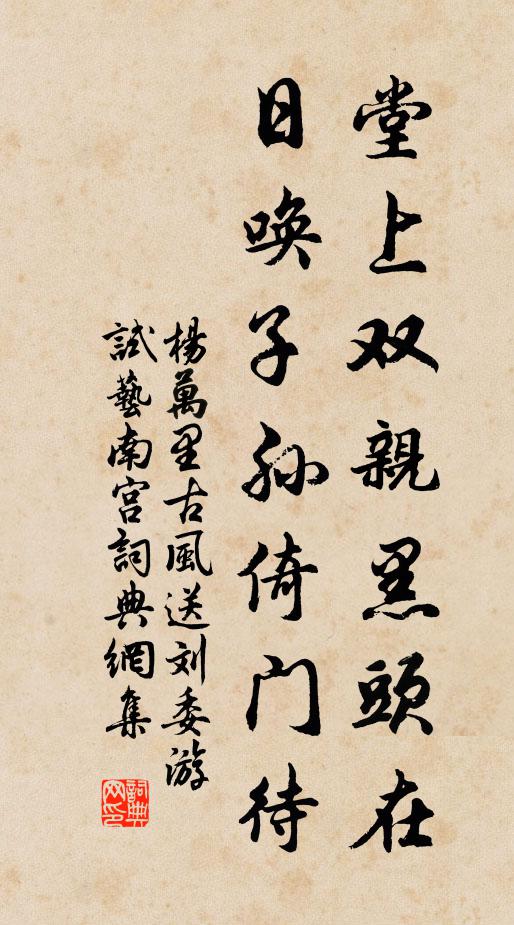 堂上双親黑頭在
日唤子孙倚门待
楊萬里古風送刘委游
試藝南宫詞典網集
詞典网印